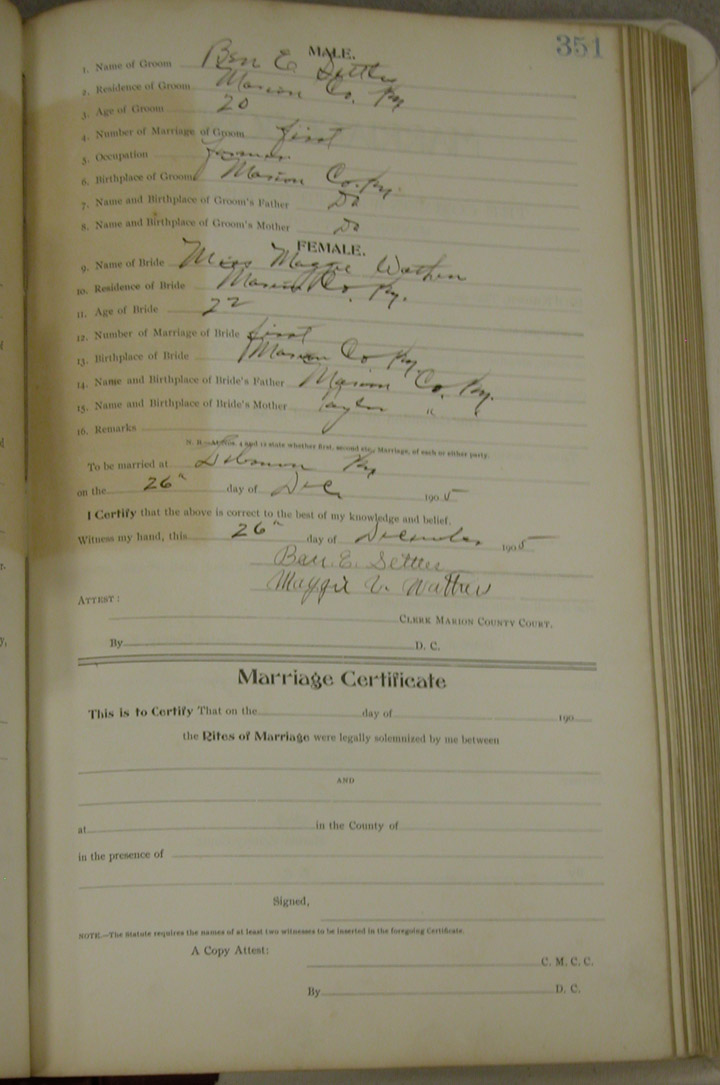 351
MALE.
1. Name of Groom Ben E. Settles
2. Residence of Groom Marion Co. Ky
3. Age of Groom 20
4. Number of Marriage of Groom first
5. Occupation farmer
6. Birthplace of Groom Marion Co. Ky.
7. Name and Birthplace of Groom's Father Do
8. Name and Birthplace of Groom's Mother Do
FEMALE.
9. Name of Bride Miss Maggie Wathen
10. Residence of Bride Marion Co. Ky.
11. Age of Bride 22
12. Number of Marriage of Bride first
13. Birthplace of Bride Marion Co Ky.
14. Name and Birthplace of Bride's Father Marion Co. Ky.
15. Name and Birthplace of Bride's Mother Taylor " "
16. Remarks
N. B.—At Nos. 4 and 12 state whether first, second etc., Marriage, of each or either party.
To be married at Lebanon Ky
on the 26" day of Dec 1905
I Certify that the above is correct to the best of my knowledge and belief.
Witness my hand, this 26" day of December 1905
Ben. E. Settles
Maggie V. Wathen
ATTEST:
CLERK MARION COUNTY COURT.
By D. C.
Marriage Certificate
This is to Certify That on the day of 190
the Rites of Marriage were legally solemnized by me between
AND
at in the County of
in the presence of
Signed,
NOTE.—The Statute requires the names of at least two witnesses to be inserted in the foregoing Certificate.
A Copy Attest:
C. M. C. C.
By D. C.